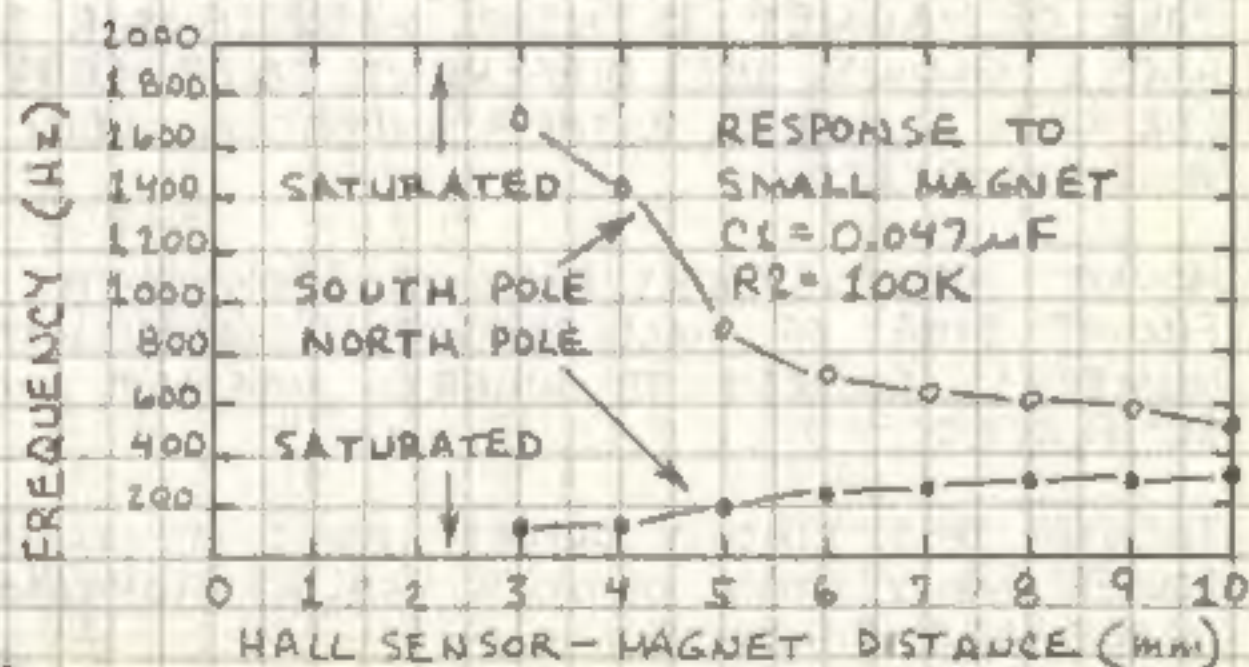 FREQUENCY (Hz)
2000
1800
1600
1400
1200
1000
800
600
400
200
SATURATED
RESPONSE TO
SMALL MAGNET
C1 = 0.047 µF
R2 = 100K
SOUTH POLE
NORTH POLE
SATURATED
0 1 2 3 4 5 6 7 8 9 10
HALL SENSOR - MAGNET DISTANCE (mm)